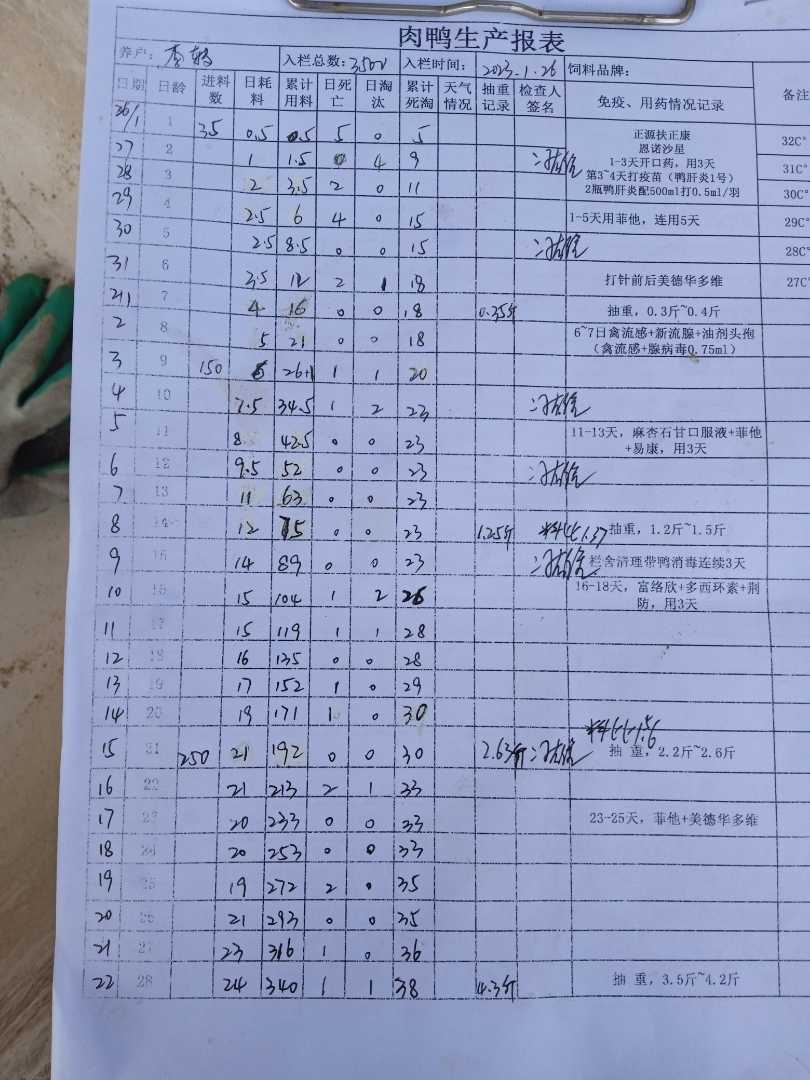 肉鸭生产报表
养户: 入栏总数:3502 入栏时间: 2023.1.26 饲料品牌:
日期 日龄 进料数 日耗料 累计用料 日死亡 日淘汰 累计死淘 天气情况 抽重记录 检查人签名 免疫、用药情况记录 备注
26/1 1 35 0.5 0.5 5 0 5 正源扶正康 32C°
恩诺沙星
27 2 1 1.5 0 4 9 1-3天开口药，用3天 31C°
28 3 2 3.5 2 0 11 第3~4天打疫苗（鸭肝炎1号） 30C°
2瓶鸭肝炎配500ml打0.5ml/羽
29 4 2.5 6 4 0 15 1-5天用菲他，连用5天 29C°
30 5 2.5 8.5 0 0 15 28C°
31 6 3.5 12 2 1 18 打针前后美德华多维 27C°
2/1 7 4 16 0 0 18 0.35斤 抽重，0.3斤~0.4斤
2 8 5 21 0 0 18 6~7日禽流感+新流腺+油剂头孢
（禽流感+腺病毒0.75ml）
3 9 150 6 26 1 1 20
4 10 7.5 34.5 1 2 23
5 11 8. 42.5 0 0 23 11-13天，麻杏石甘口服液+菲他
+易康，用3天
6 12 9.5 52 0 0 23
7 13 11 63 0 0 23
8 14 12 75 0 0 23 1.25斤 料比1.37 抽重，1.2斤~1.5斤
9 15 14 89 0 0 23 栏舍清理带鸭消毒连续3天
10 16 15 104 1 2 26 16-18天，富络欣+多西环素+荆
防，用3天
11 17 15 119 1 1 28
12 18 16 135 0 0 28
13 19 17 152 1 0 29
14 20 19 171 1 0 30
料比1.6
15 21 250 21 192 0 0 30 2.63斤 抽 重，2.2斤~2.6斤
16 22 21 213 2 1 33
17 23 20 233 0 0 33 23-25天，菲他+美德华多维
18 24 20 253 0 0 33
19 25 19 272 2 0 35
20 26 21 293 0 0 35
21 27 23 316 1 0 36
22 28 24 340 1 1 38 4.3斤 抽 重，3.5斤~4.2斤